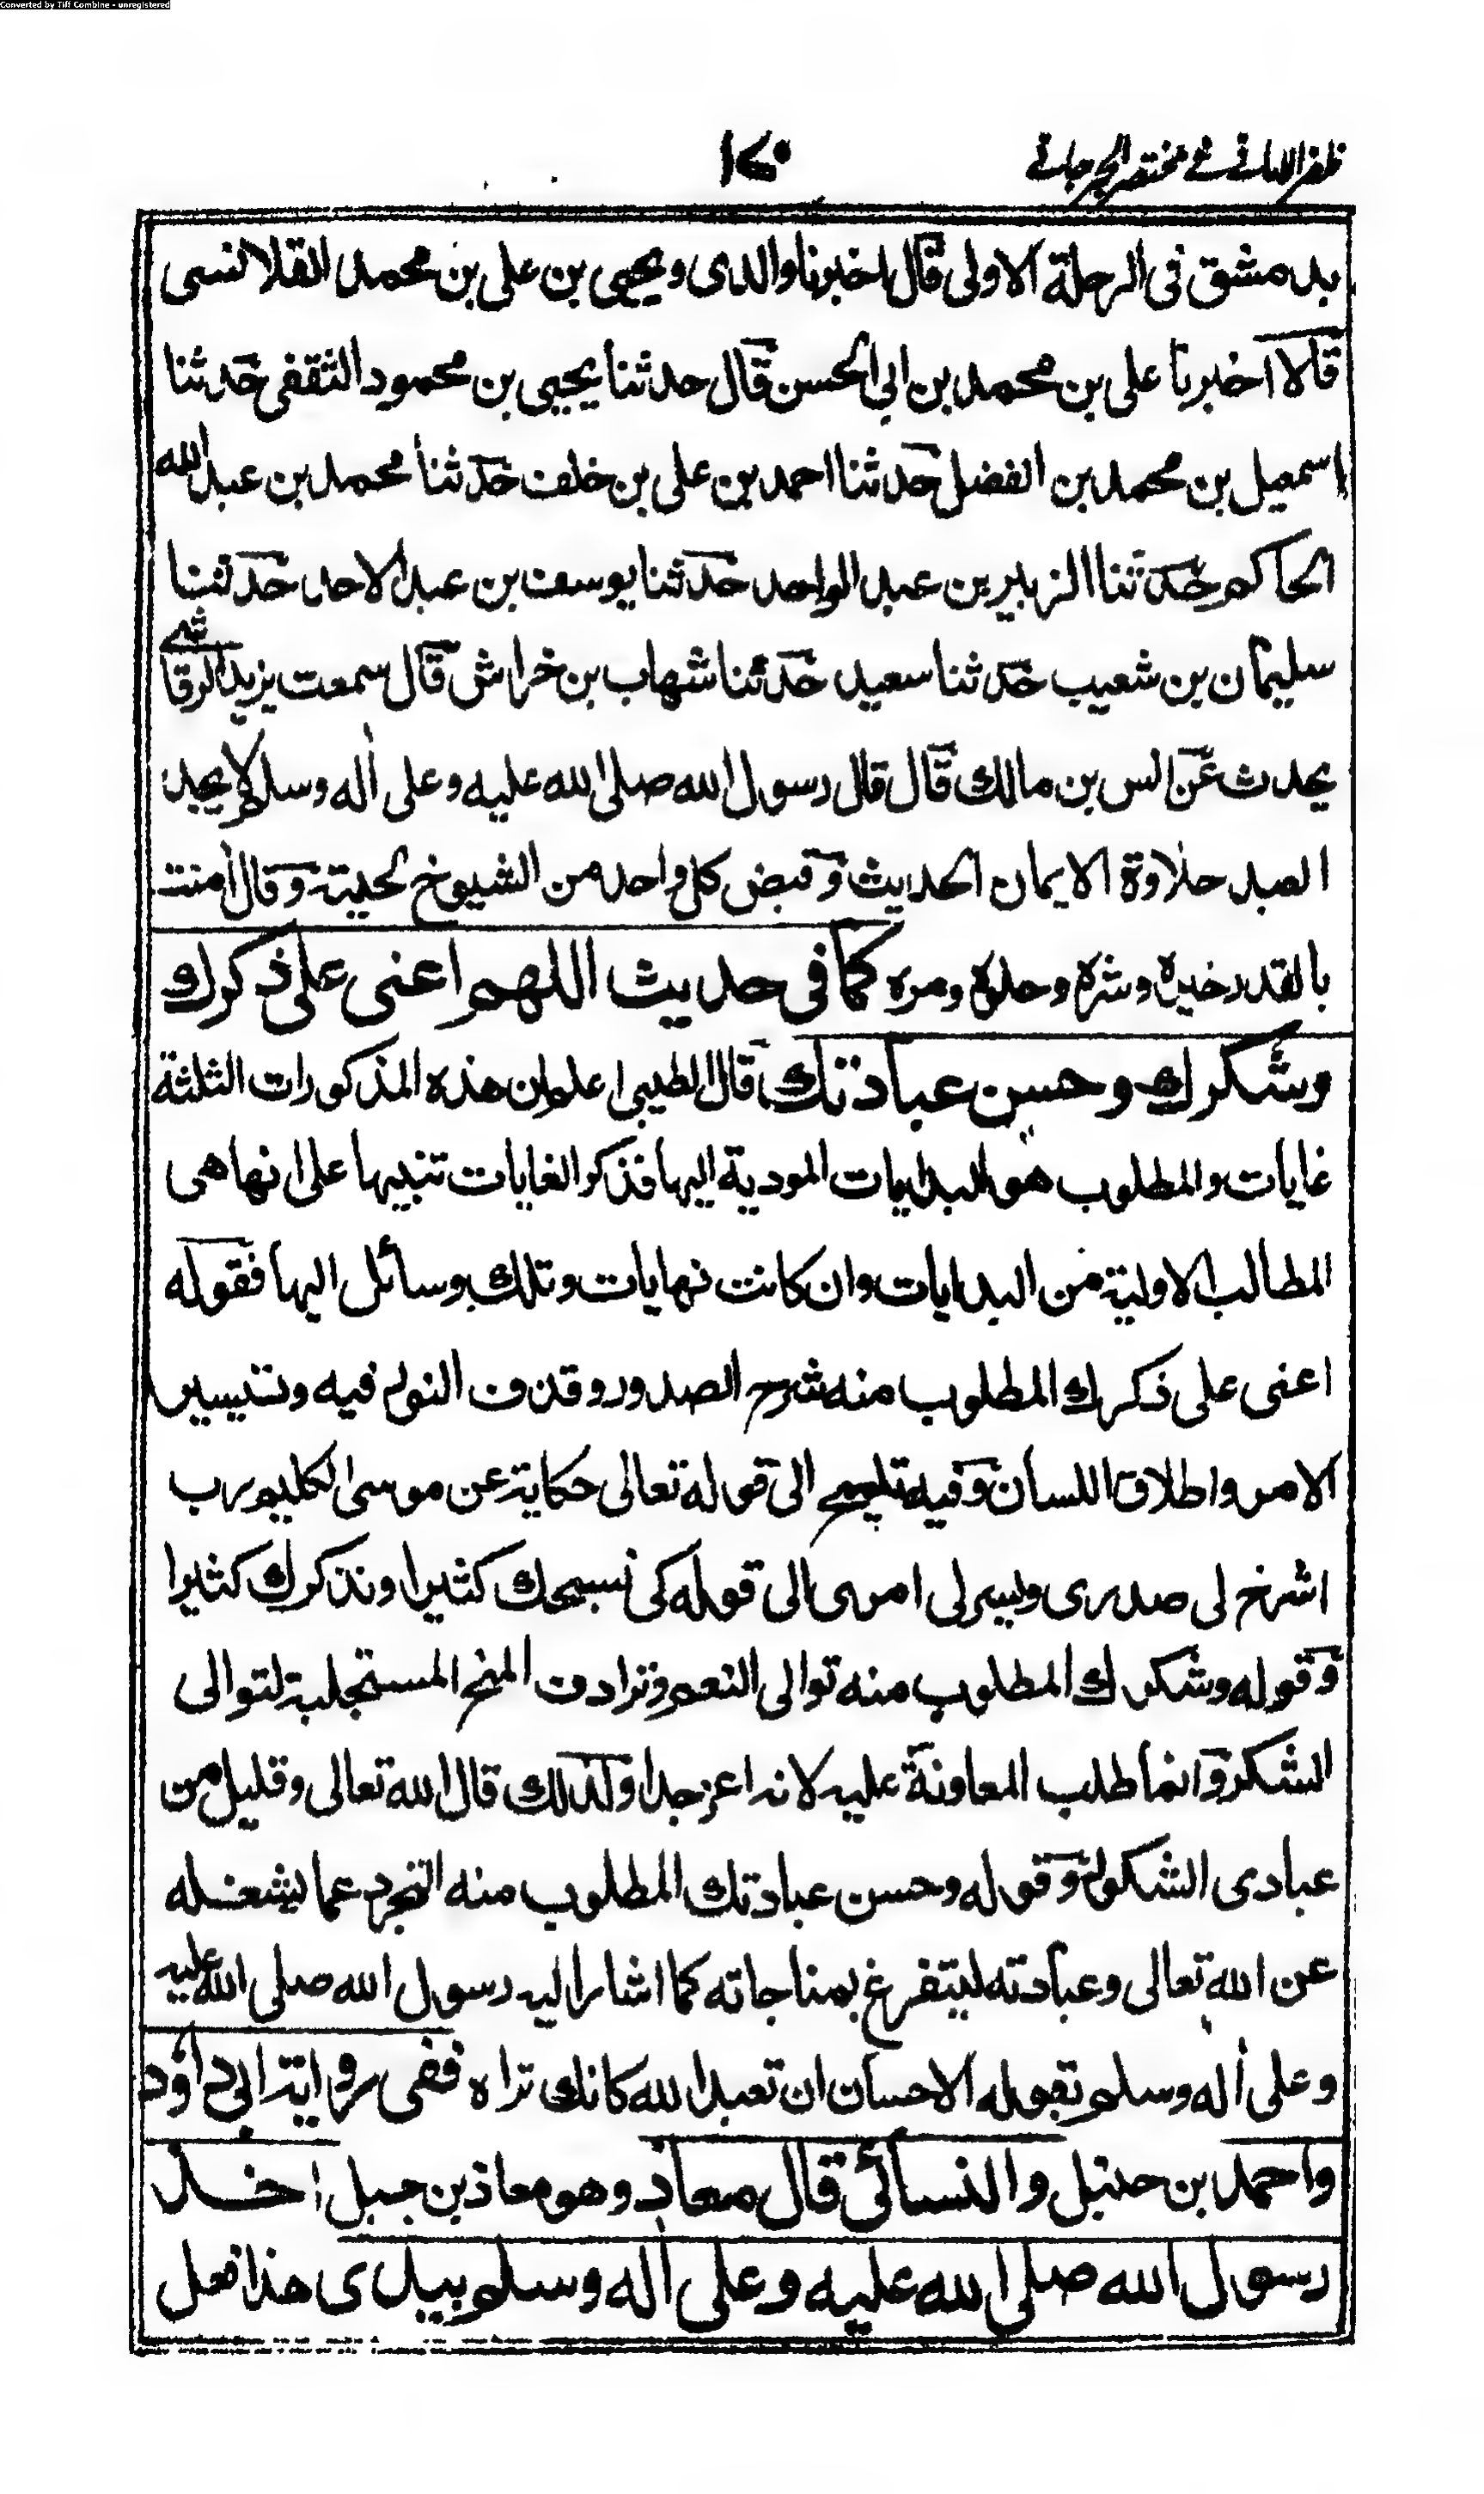 Converted by Tiff Combine - unregistered
ظفر الامانی فی مختصر الجرجانی
۱۷۰
بدمشق فى الرحلة الاولى قال اخبرنا والدى ويحيى بن على بن محمد القلانسى
قالا اخبرنا على بن محمد بن ابى الحسن قال حدثنا يحيى بن محمود الثقفى حدثنا
اسمعيل بن محمد بن الفضل حدثنا احمد بن على بن خلف حدثنا محمد بن عبد الله
الحاكم حدثنا الزبير بن عبد الواحد حدثنا يوسف بن عبد الاحد حدثنا
سليمان بن شعيب حدثنا سعيد حدثنا شهاب بن خراش قال سمعت يزيد الرقاشى
يحدث عن انس بن مالك قال قال رسول الله صلى الله عليه وعلى اله وسلم لا يجد
العبد حلاوة الايمان الحديث وقبض كل واحد من الشيوخ لحيته وقال امنت
بالقدر خيره وشره وحلوه ومره كما فى حديث اللهم اعنى على ذكرك و
وشكرك وحسن عبادتك قال الطيبى اعلم ان هذه المذكورات الثلثة
غايات والمطلوب هو البدايات المودية اليها فذكر الغايات تنبيها على انها هى
المطالب الاولية من البدايات وان كانت نهايات وتلك وسائل اليها فقوله
اعنى على ذكرك المطلوب منه شرح الصدور وقذف النور فيه وتيسير
الامر واطلاق اللسان وفيه تلميح الى قوله تعالى حكاية عن موسى الكليم رب
اشرح لى صدرى ويسر لى امرى الى قوله كى نسبحك كثيرا ونذكرك كثيرا
وقوله وشكرك المطلوب منه توالى النعم وترادف المنح المستجلبة لتوالى
الشكر وانما طلب المعاونة عليه لانه اعز جدا ولذلك قال الله تعالى وقليل من
عبادى الشكور وقوله وحسن عبادتك المطلوب منه التجرد عما يشغله
عن الله تعالى وعبادته ليتفرغ بمناجاته كما اشار اليه رسول الله صلى الله عليه
وعلى اله وسلم بقوله الاحسان ان تعبد الله كانك تراه ففى رواية ابى داود
واحمد بن حنبل والنسائى قال معاذ وهو معاذ بن جبل اخذ
رسول الله صلى الله عليه وعلى اله وسلم بيدى هذا فعل